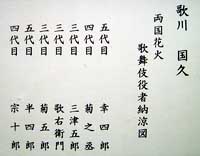 歌川 国久
両国花火
歌舞伎役者納涼図
五代目 幸四郎
四代目 菊之丞
三代目 三津五郎
三代目 歌右衛門
三代目 菊五郎
五代目 半四郎
四代目 宗十郎